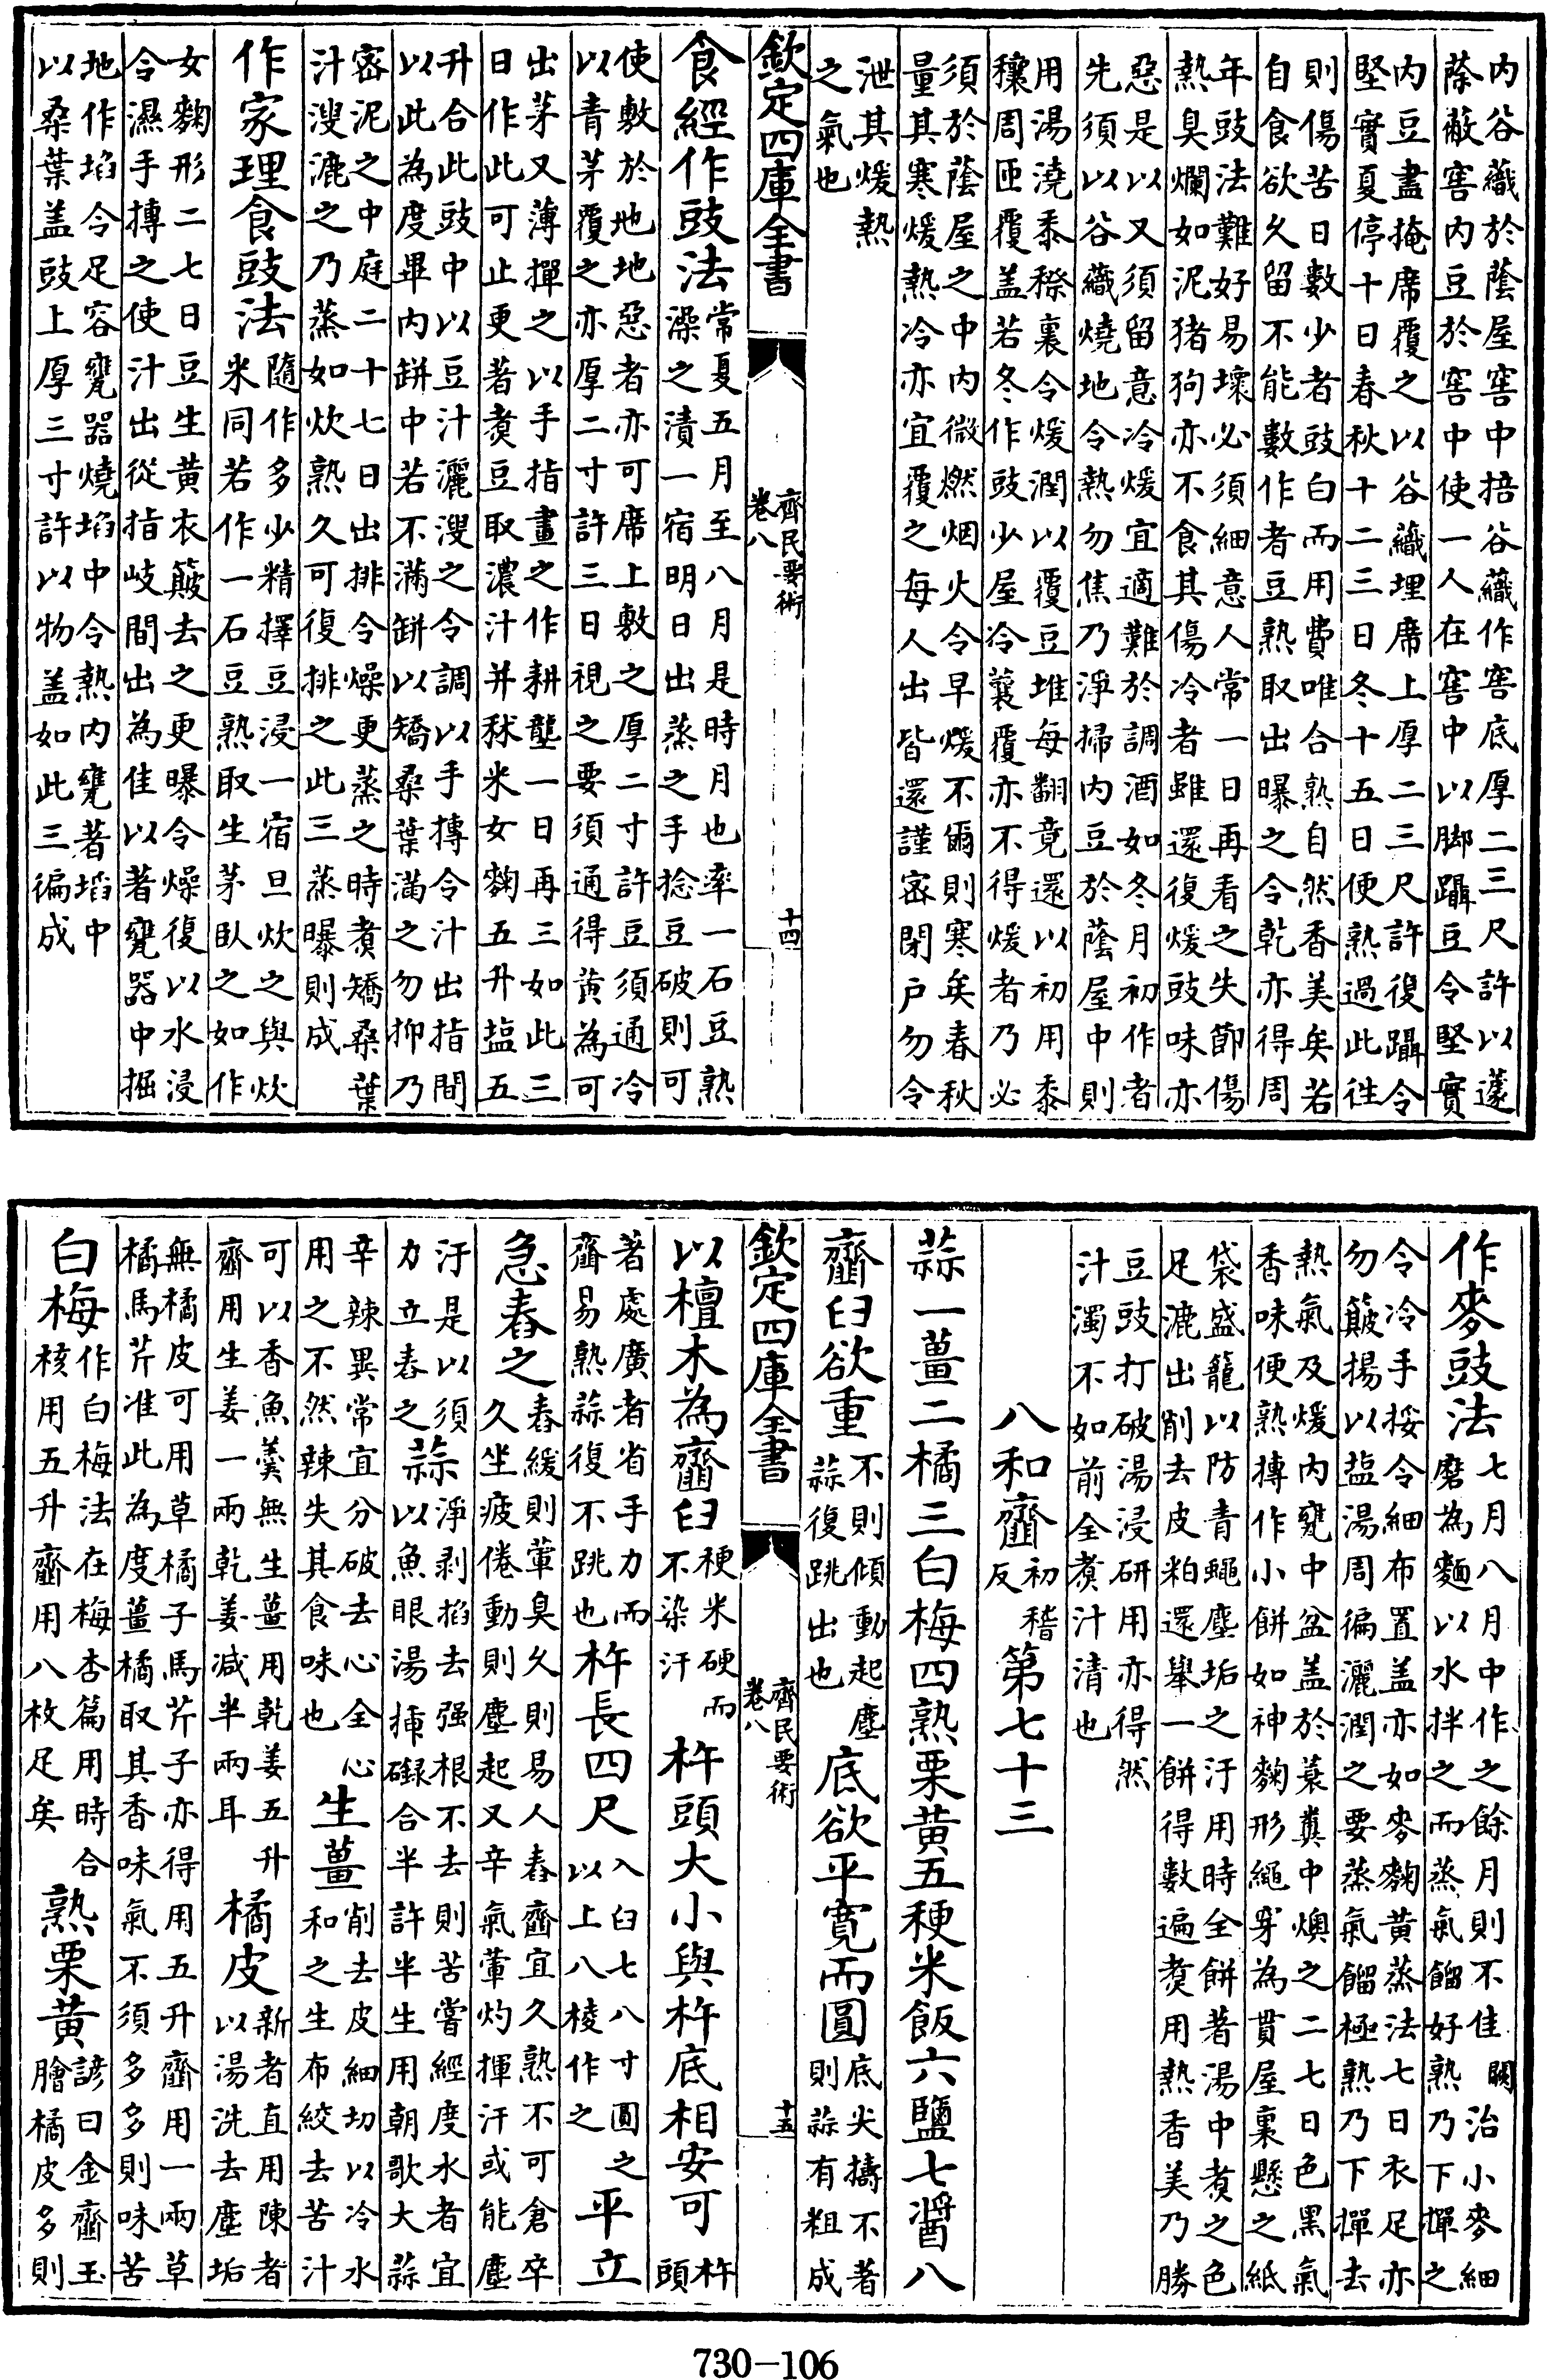 内谷蘵於蔭屋窖中掊谷蘵作窖底厚二三尺許以蘧
蔭蔽窖内豆於窖中使一人在窖中以脚躡豆令堅實
内豆盡掩席覆之以谷蘵埋席上厚二三尺許復躡令
堅實夏停十日春秋十二三日冬十五日便熟過此徃
則傷苦日數少者豉白而用費唯合熟自然香美矣若
自食欲久留不能數作者豆熟取出曝之令乾亦得周
年豉法難好易壞必須細意人常一日再看之失節傷
熱臭爛如泥猪狗亦不食其傷冷者雖還復煖豉味亦
惡是以又須留意冷煖宜適難於調酒如冬月初作者
先須以谷蘵燒地令熱勿焦乃淨掃内豆於蔭屋中則
用湯澆黍穄裏令煖潤以覆豆堆每翻竟還以初用黍
穰周匝覆盖若冬作豉少屋冷蘘覆亦不得煖者乃必
須於蔭屋之中内微燃烟火令早煖不爾則寒矣春秋
量其寒煖熱冷亦宜覆之每人出皆還謹密閉户勿令
泄其煖熱
之氣也
欽定四庫全書
齊民要術
卷八
十四
食經作豉法常夏五月至八月是時月也率一石豆熟
澡之漬一宿明日出蒸之手捻豆破則可
使敷於地地惡者亦可席上敷之厚二寸許豆須通冷
以青茅覆之亦厚二寸許三日視之要須通得黄為可
出茅又薄撣之以手指畫之作耕壟一日再三如此三
日作此可止更著煑豆取濃汁并秫米女麴五升塩五
升合此豉中以豆汁灑溲之令調以手摶令汁出指間
以此為度畢内缾中若不滿缾以矯桑葉滿之勿抑乃
密泥之中庭二十七日出排令燥更蒸之時煑矯桑葉
汁溲漉之乃蒸如炊熟久可復排之此三蒸曝則成
作家理食豉法隨作多少精擇豆浸一宿旦炊之與炊
米同若作一石豆熟取生茅臥之如作
女麴形二七日豆生黄衣簸去之更曝令燥復以水浸
令濕手摶之使汁出從指岐間出為佳以著甕器中掘
地作埳令足容甕器燒埳中令熱内甕著埳中
以桑葉盖豉上厚三寸許以物盖如此三徧成
作麥豉法七月八月中作之餘月則不佳闕治小麥細
磨為麵以水拌之而蒸氣餾好熟乃下撣之
令冷手挼令細布置盖亦如麥麴黄蒸法七日衣足亦
勿簸揚以塩湯周徧灑潤之要蒸氣餾極熟乃下撣去
熱氣及煖内甕中盆盖於蘘糞中燠之二七日色黑氣
香味便熟摶作小餅如神麴形繩穿為貫屋裏懸之紙
袋盛籠以防青蠅塵垢之汙用時全餅著湯中煑之色
足漉出削去皮粕還舉一餅得數遍煑用熱香美乃勝
豆豉打破湯浸研用亦得然
汁濁不如前全煑汁清也
八和齏初稽
反
第七十三
蒜一薑二橘三白梅四熟栗黄五稉米飯六鹽七醤八
齏臼欲重不則傾動起塵
蒜復跳出也
底欲平寛而圓底尖擣不著
則蒜有粗成
欽定四庫全書
齊民要術
卷八
十五
以檀木為齏臼稉米硬而
不染汗
杵頭大小與杵底相安可杵
頭
著處廣者省手力而
齏易熟蒜復不跳也
杵長四尺入臼七八寸圓之
以上八棱作之
平立
急舂之舂緩則葷臭久則易人舂齏宜久熟不可倉卒
久坐疲倦動則塵起又辛氣葷灼揮汗或能塵
汙是以須
力立舂之
蒜淨剥掐去强根不去則苦嘗經度水者宜
以魚眼湯插碌合半許半生用朝歌大蒜
辛辣異常宜分破去心全心
用之不然辣失其食味也
生薑削去皮細切以冷水
和之生布絞去苦汁
可以香魚羹無生薑用乾姜五升
齏用生姜一兩乾姜减半兩耳
橘皮新者直用陳者
以湯洗去塵垢
無橘皮可用草橘子馬芹子亦得用五升齏用一兩草
橘馬芹准此為度薑橘取其香味氣不須多多則味苦
白梅作白梅法在梅杏篇用時合
核用五升齏用八枚足矣
熟栗黄諺曰金齏玉
膾橘皮多則
730-106